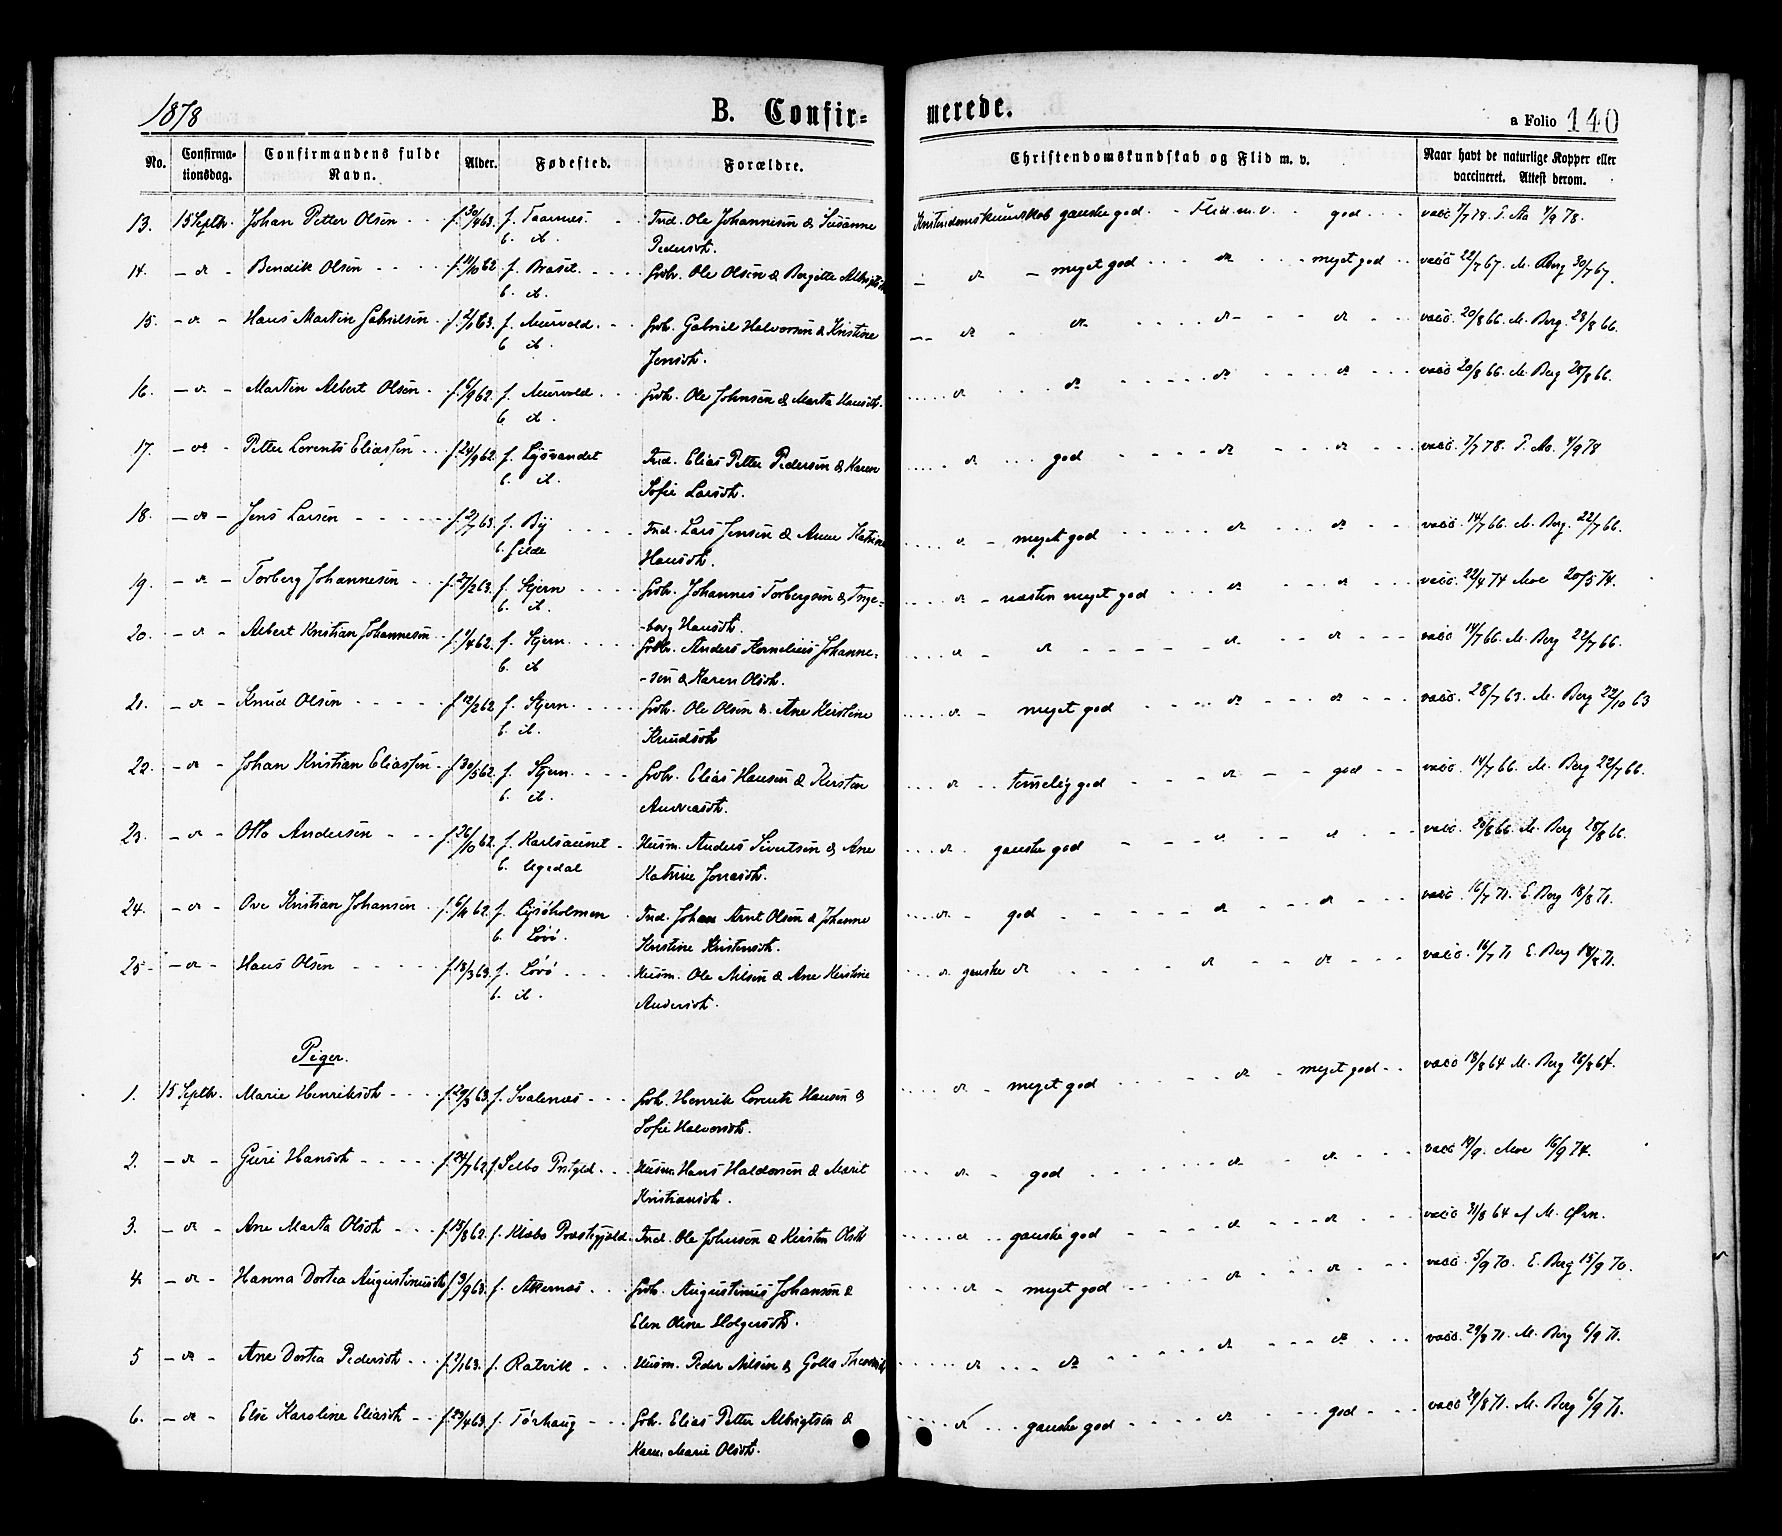 1878 B. Confir= merede. a Folio 140
No. Confirma-tionsdag. Confirmandens fulde Navn. Alder. Fødested. Forældre. Christendomskundskab og Flid m. v. Naar havt de naturlige Kopper eller vaccineret. Attest derom.
13. 15 Septbr. Johan Petter Olsen f. 30/4 63. f. Taarnes Ind. Ole Johannesen & Susanne Kristendomskundskab ganske god. Flid m. v. god vacc 7/7 78. T. Aa 4/9 78.
b. ib. Pedersdt.
14. - do - Bendik Olsen 62 f. Braset. Grbr. Ole Olsen & Bergitte do - meget god do meget god vacc 22/7 67. M. Berg 30/7 67.
b. ib.
15. - do - Hans Martin Gabrielsen f. 63. f. Aurvold. Grbr. Gabriel Halvorsen & Kristine do - do do do vacc. 20/8 66. M. Berg. 28/8 66.
b. ib. Jensdt.
16. - do - Martin Albert Olsen f. 6/9 62. f. Aurvold Grbr. Ole Johnsen & Marta Hansdt. do do do do vacc 20/8 66. M. Berg 28/8 66.
b. ib.
17. - do - Petter Lorents Eliassen f. 24/9 62. f. Lysvandet Ind. Elias Petter Pedersen & Karen do god do do vacc. 7/7 78. T. Aa. 4/9 78
b. ib. Sofie Larsdt.
18. - do - Jens Larsen f. 2/7 63. f. By Ind. Lars Jensen & Anne Katrine do - meget god do do vacc. 14/7 66. M. Berg. 22/7 66.
b. Gilde Hansdt.
19. - do - Torberg Johannesen f. 27/2 63. f. Stjern Grbr. Johannes Torbergsen & Inge= do - næsten meget god do do vacc. 22/4 74 Moe 20/5 74.
b. ib. -borg Hansdt.
20. - do - Albert Kristian Johannesen f. 1/4 62. f. Stjern Grbr. Anders Kornelius Johanne= do - do do do vacc 14/7 66. M. Berg 22/7 66.
b. ib -sen & Karen Olsdt.
21. - do - Knud Olsen f. 12/2 62. f. Stjern. Grbr. Ole Olsen & Ane Kerstine do - meget god do do vacc. 28/7 63. M. Berg 22/10 63
b. ib. Knudsdt
22. - do - Johan Kristian Eliassen f. 30/5 62. f. Stjern. Grbr. Elias Hansen & Kersten do temelig god do god vacc. 14/7 66. M. Berg 22/7 66.
b. ib. Andreasdt.
23. - do - Otto Andersen f. 26/10 62. f. Karlsaunet Husm. Anders Sivertsen & Ane do ganske god do do vacc. 20/8 66. M. Berg 28/8 66.
b. Ugedal Katrine Jonasdt.
24. - do - Ove Kristian Johansen f. 62. f. Lysøholmen Ind. Johan Arnt Olsen & Johanne do - god do do vacc. 16/7 71. E. Berg 18/8 71.
b. Lovø. Kristine Kristensdt.
25. - do - Hans Olsen f. 18/3 63. f. Lovø Husm. Ole Nilsen & Ane Kerstine do ganske do do do vacc. 16/7 71 E. Berg 18/8 71.
b. ib. Andersdt.
Piger.
1. 15 Septbr. Marie Henriksdt f. 29/3 63. f. Svalenes Grbr. Henrik Lorents Hansen & do - meget god do meget god vacc 18/8 64 M. Berg 26/8 64.
Sofie Halvorsdt.
2. - do - Guri Hansdt f. 24/7 62. f. Selbo Prstgld. Husm. Hans Haldorsen & Marit do - god do do vacc 19/9. Moe 16/9 74.
Kristiansdt.
3. - do - Ane Marta Olsdt f. 15/8 62. f. Klæbo Præstegjæld. Ind. Ole Johnsen & Kirsten Olsdt do ganske god do do vacc 31/8 64 af M. Ørn.
4. - do - Hanna Dortea Augustinusdt f. 3/9 63. f. Akernes Grbr. Augustinus Johansen & do - meget god do do vacc 5/9 70. E. Berg 15/9 70.
Elen Oline Holgersdt.
5 - do - Ane Dortea Pedersdt f. 2/1 63. f. Ratvik Husm. Peder Nilsen & do do do do vacc. 29/8 71. M. Berg 6/9 71.
6. - do - Else Karoline Eliasdt f. 23/4 63. f. Tørhaug Grbr. Elias Petter Albrigtsen & do ganske god do god vacc 29/8 71. M. Berg 6/9 71.
Karen Marie Olsdt.